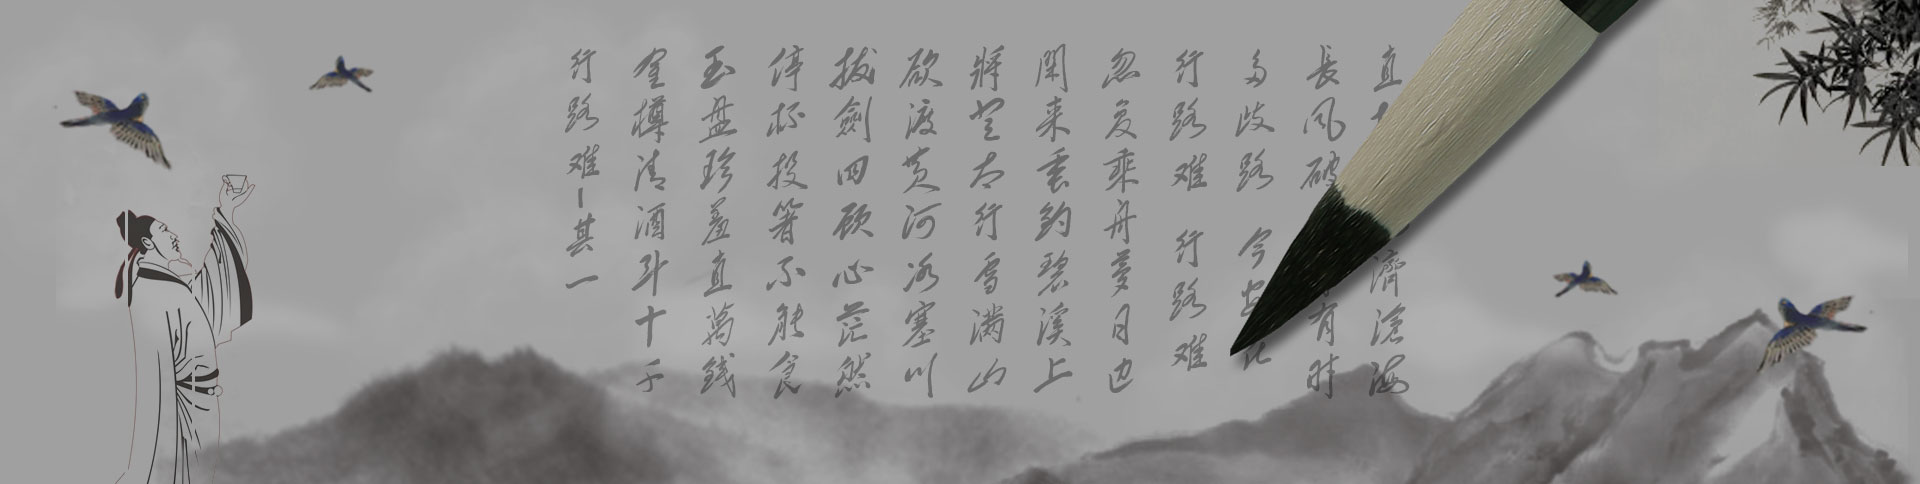 行路难-其一
金樽清酒斗十千
玉盘珍羞直萬錢
停杯投箸不能食
拔劍四顾心茫然
欲渡黄河冰塞川
將登太行雪满山
閑来垂釣碧溪上
忽复乘舟夢日边
行路难 行路难
多歧路 今
長风破有时
直濟滄海